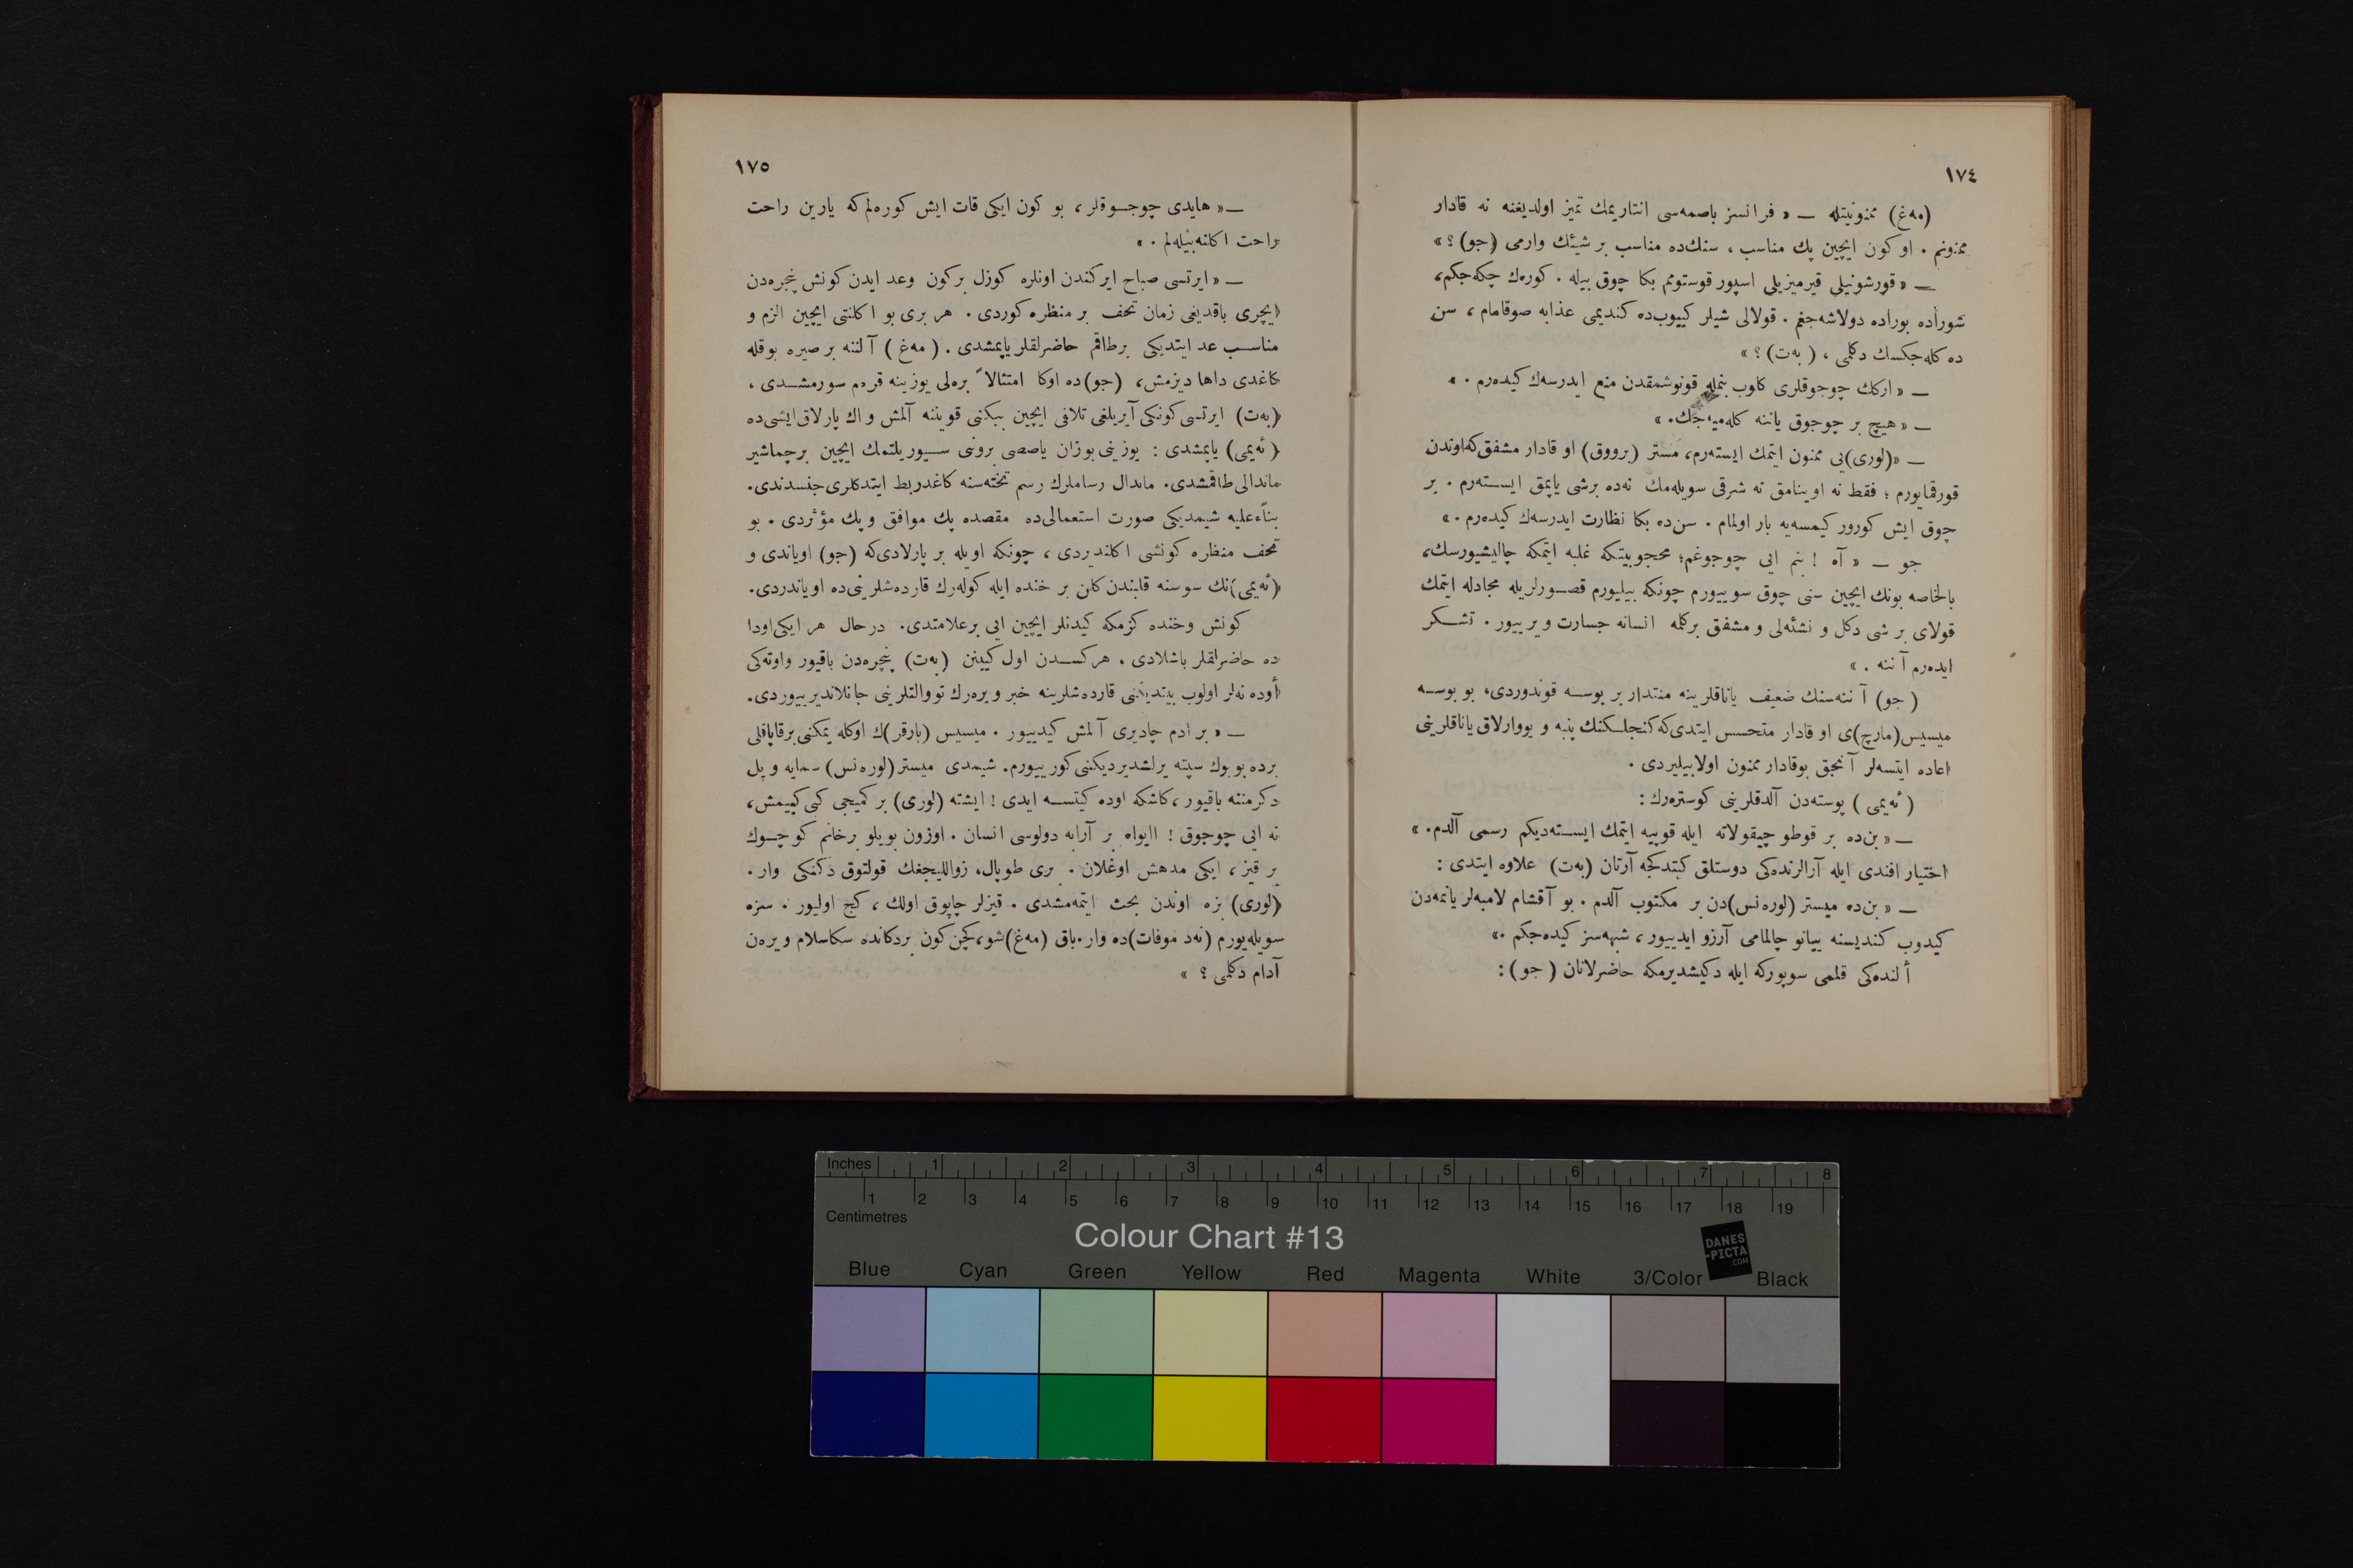 ١٧٤
(مه‌غ) ممنونیتله — « فرانسز باصمه‌سی انتاریمك تمیز اولدیغنه نه قادار
ممنونم . او كون ایچین پك مناسب ، سنك‌ده مناسب بر شیئك وارمی (جو) ؟ »
— « قورشونیلی قیرمیزیلی اسپور قوستومم بكا چوق بیله . كوره‌ك چكه‌جكم،
شوراده بوراده دولاشه‌جغم . قولالی شیلر كییوب‌ده كندیمی عذابه صوقامام ، سن
ده كله‌جكسك دكلمی ، ( به‌ت) ؟ »
— « اركك چوجوقلری كلوب بنمله قونوشمقدن منع ایدرسه‌ك كیده‌رم . »
— « هیچ بر چوجوق یاننه كله‌میه‌جك. »
— «(لوری)یی ممنون ایتمك ایسته‌رم، مستر (برووق) او قادار مشفق‌كه‌اوندن
قورقمایورم ؛ فقط نه اوینامق نه شرقی سویله‌مك نه‌ده برشی یاپمق ایسته‌رم . بر
چوق ایش كورور كیمسه‌یه بار اولمام . سن‌ده بكا نظارت ایدرسه‌ك كیده‌رم . »
جو — « آه ! بنم ایی چوجوغم؛ محجوبیتكه غلبه ایتمكه چالیشیورسك،
بالخاصه بونك ایچین سنی چوق سوییورم چونكه بیلیورم قصورلریله مجادله ایتمك
قولای بر شی دكل و نشئه‌لی و مشفق بركله انسانه جسارت ویرییور . تشكر
ایده‌رم آننه . »
( جو) آننه‌سنك ضعیف یاناقلرینه منتدار بر بوسه قوندوردی، بو بوسه
میسیس(مارچ)ی او قادار متحسس ایتدی‌كه كنجلكنك پنبه و یووارلاق یاناقلرینی
اعاده ایتسه‌لر آنجق بوقادار ممنون اولابیلیردی .
( ئه‌یمی ) پوسته‌دن آلدقلرینی كوستره‌رك :
— « بن‌ده بر قوطو چیقولاته ایله قوپیه ایتمك ایسته‌دیكم رسمی آلدم. »
اختیار افندی ایله آرالرنده‌كی دوستلق كیتدكجه آرتان (به‌ت) علاوه ایتدی :
— « بن‌ده میستر (لوره‌نس)دن بر مكتوب آلدم . بو آقشام لامبه‌لر یانمه‌دن
كیدوب كندیسنه پیانو چالمامی آرزو ایدییور ، شبهه‌سز كیده‌جكم .»
ألنده‌كی قلمی سوپوركه ایله دكیشدیرمكه حاضرلانان ( جو) :
١٧٥
— « هایدی چوجوقلر ، بو كون ایكی قات ایش كوره‌لم كه یارین راحت
راحت اكلنه‌بیله‌لم . »
— « ایرتسی صباح ایركندن اونلره كوزل بركون وعد ایدن كونش پنجره‌دن
ایچری باقدیغی زمان تحف بر منظره كوردی . هر بری بو اكلنتی ایچین الزم و
مناسب عد ایتدیكی برطاقم حاضرلقلر یاپمشدی . ( مه‌غ ) آلننه بر صیره بوقله
كاغدی داها دیزمش، (جو)ده اوكا امتثالاً بره‌لی یوزینه قره‌م سورمشدی ،
(به‌ت) ایرتسی كونكی آیریلغی تلافی ایچین ببكنی قویننه آلمش و اك پارلاق‌ایشی‌ده
( ئه‌یمی) یاپمشدی : یوزینی بوزان یاصصی برونی سیوریلتمك ایچین برچماشیر
ماندالی طاقمشدی. ماندال رساملرك رسم تخته‌سنه كاغدربط ایتدكلری جنسدندی.
بناءعلیه شیمدیكی صورت استعمالی‌ده مقصده پك موافق و پك مؤثردی . بو
تحف منظره كونشی اكلندیردی ، چونكه اویله بر پارلادی‌كه (جو) اویاندی و
(ئه‌یمی)نك سوسنه قلبندن كلن بر خنده ایله كوله‌رك قارده‌شلرینی‌ده اویاندردی.
كونش وخنده كزمكه كیدنلر ایچین ایی برعلامتدی. درحال هر ایكی‌اودا
ده حاضرلقلر باشلادی . هركسدن اول كیینن (به‌ت) پنچره‌دن باقیور واوته‌كی
أوده نه‌لر اولوب بیتدیكنی قارده‌شلرینه خبر ویره‌رك تووالتلرینی جانلاندیرییوردی.
— « بر ادم چادیری آلمش كیدییور . میسیس (بارقر)ك اوكله یمكنی برقاپاقلی
برده بویوك سپته یرلشدیردیكنی كورییورم. شیمدی میستر (لوره‌نس) سمایه و یل
دكرمننه باقیور ، كاشكه اوده كیتسه ایدی ! ایشته (لوری) بر كمیجی كبی كییمش،
نه ایی چوجوق ! اایواه بر آرابه دولوسی انسان . اوزون بویلو برخانم كوچوك
بر قیز ، ایكی مدهش اوغلان . بری طوپال، زواللیجغك قولتوق دكنكی وار .
(لوری) بزه اوندن بحث ایتمه‌مشدی . قیزلر چاپوق اولك ، كچ اولیور . سزه
سویله‌یورم (نه‌د موفات)ده وار.باق (مه‌غ)شو،كچن‌كون بردكانده سكاسلام ویره‌ن
آدام دكلمی ؟ »
Inches 1 2 3 4 5 6 7 8
1 2 3 4 5 6 7 8 9 10 11 12 13 14 15 16 17 18 19
Centimetres
Colour Chart #13
DANES
-PICTA
.COM
Blue Cyan Green Yellow Red Magenta White 3/Color Black